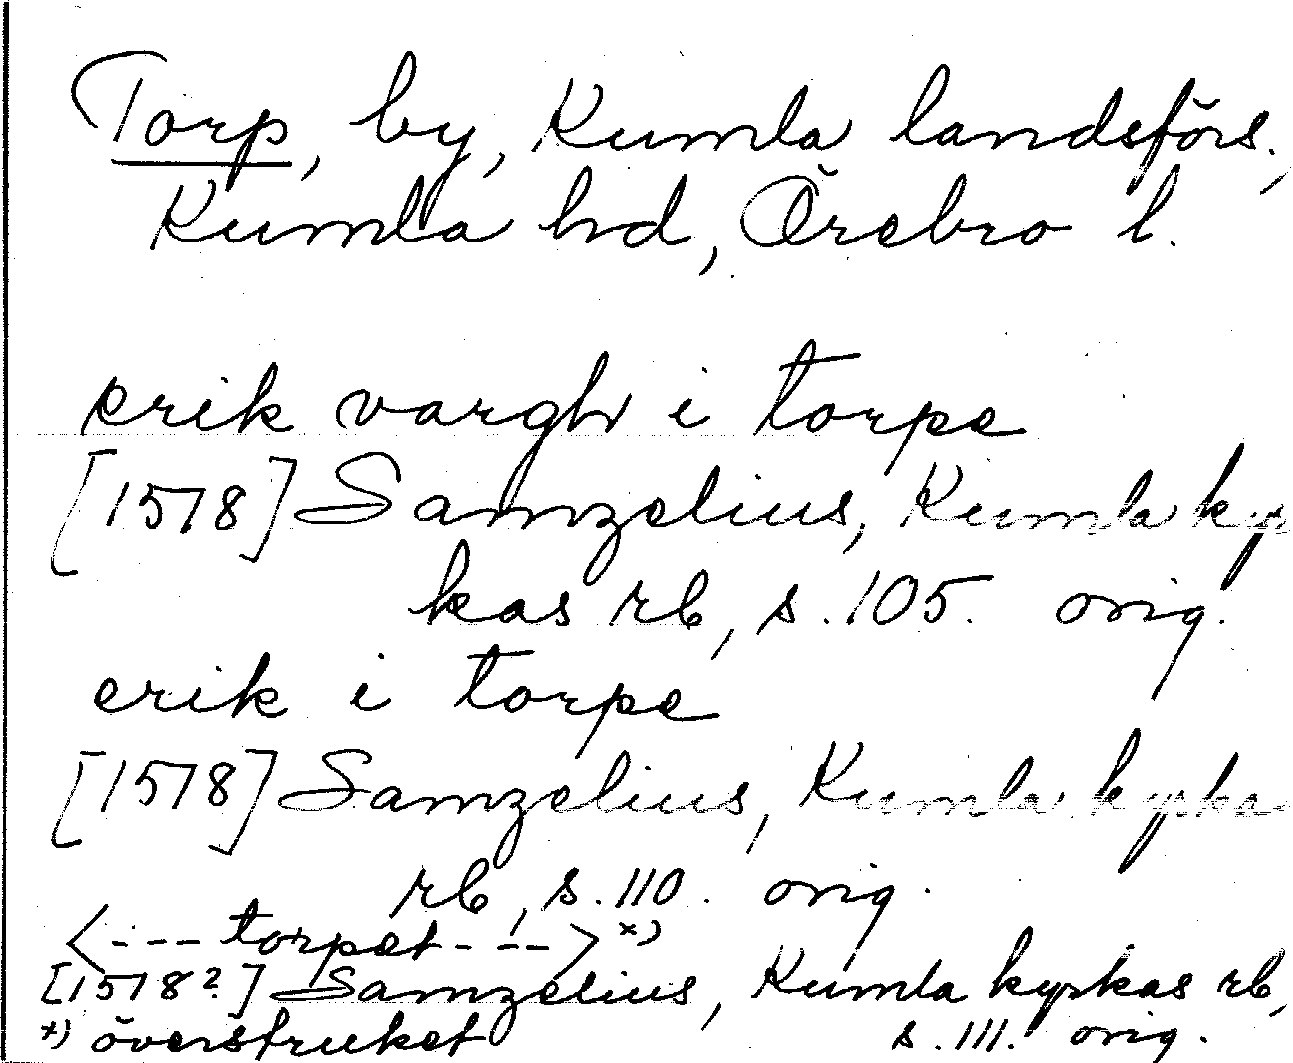 Torp, by, Kumla landsförs.,
Kumla hd, Örebro l.
erik vargh i torpe
[1578] Samzelius, Kumla kyr
kas rb, s. 105. orig.
erik i torpe
[1578] Samzelius, Kumla kyrkas
rb, s. 110. orig.
<--- torpet --->x)
[1578?] Samzelius, Kumla kyrkas rb,
x) överstruket s. 111. orig.